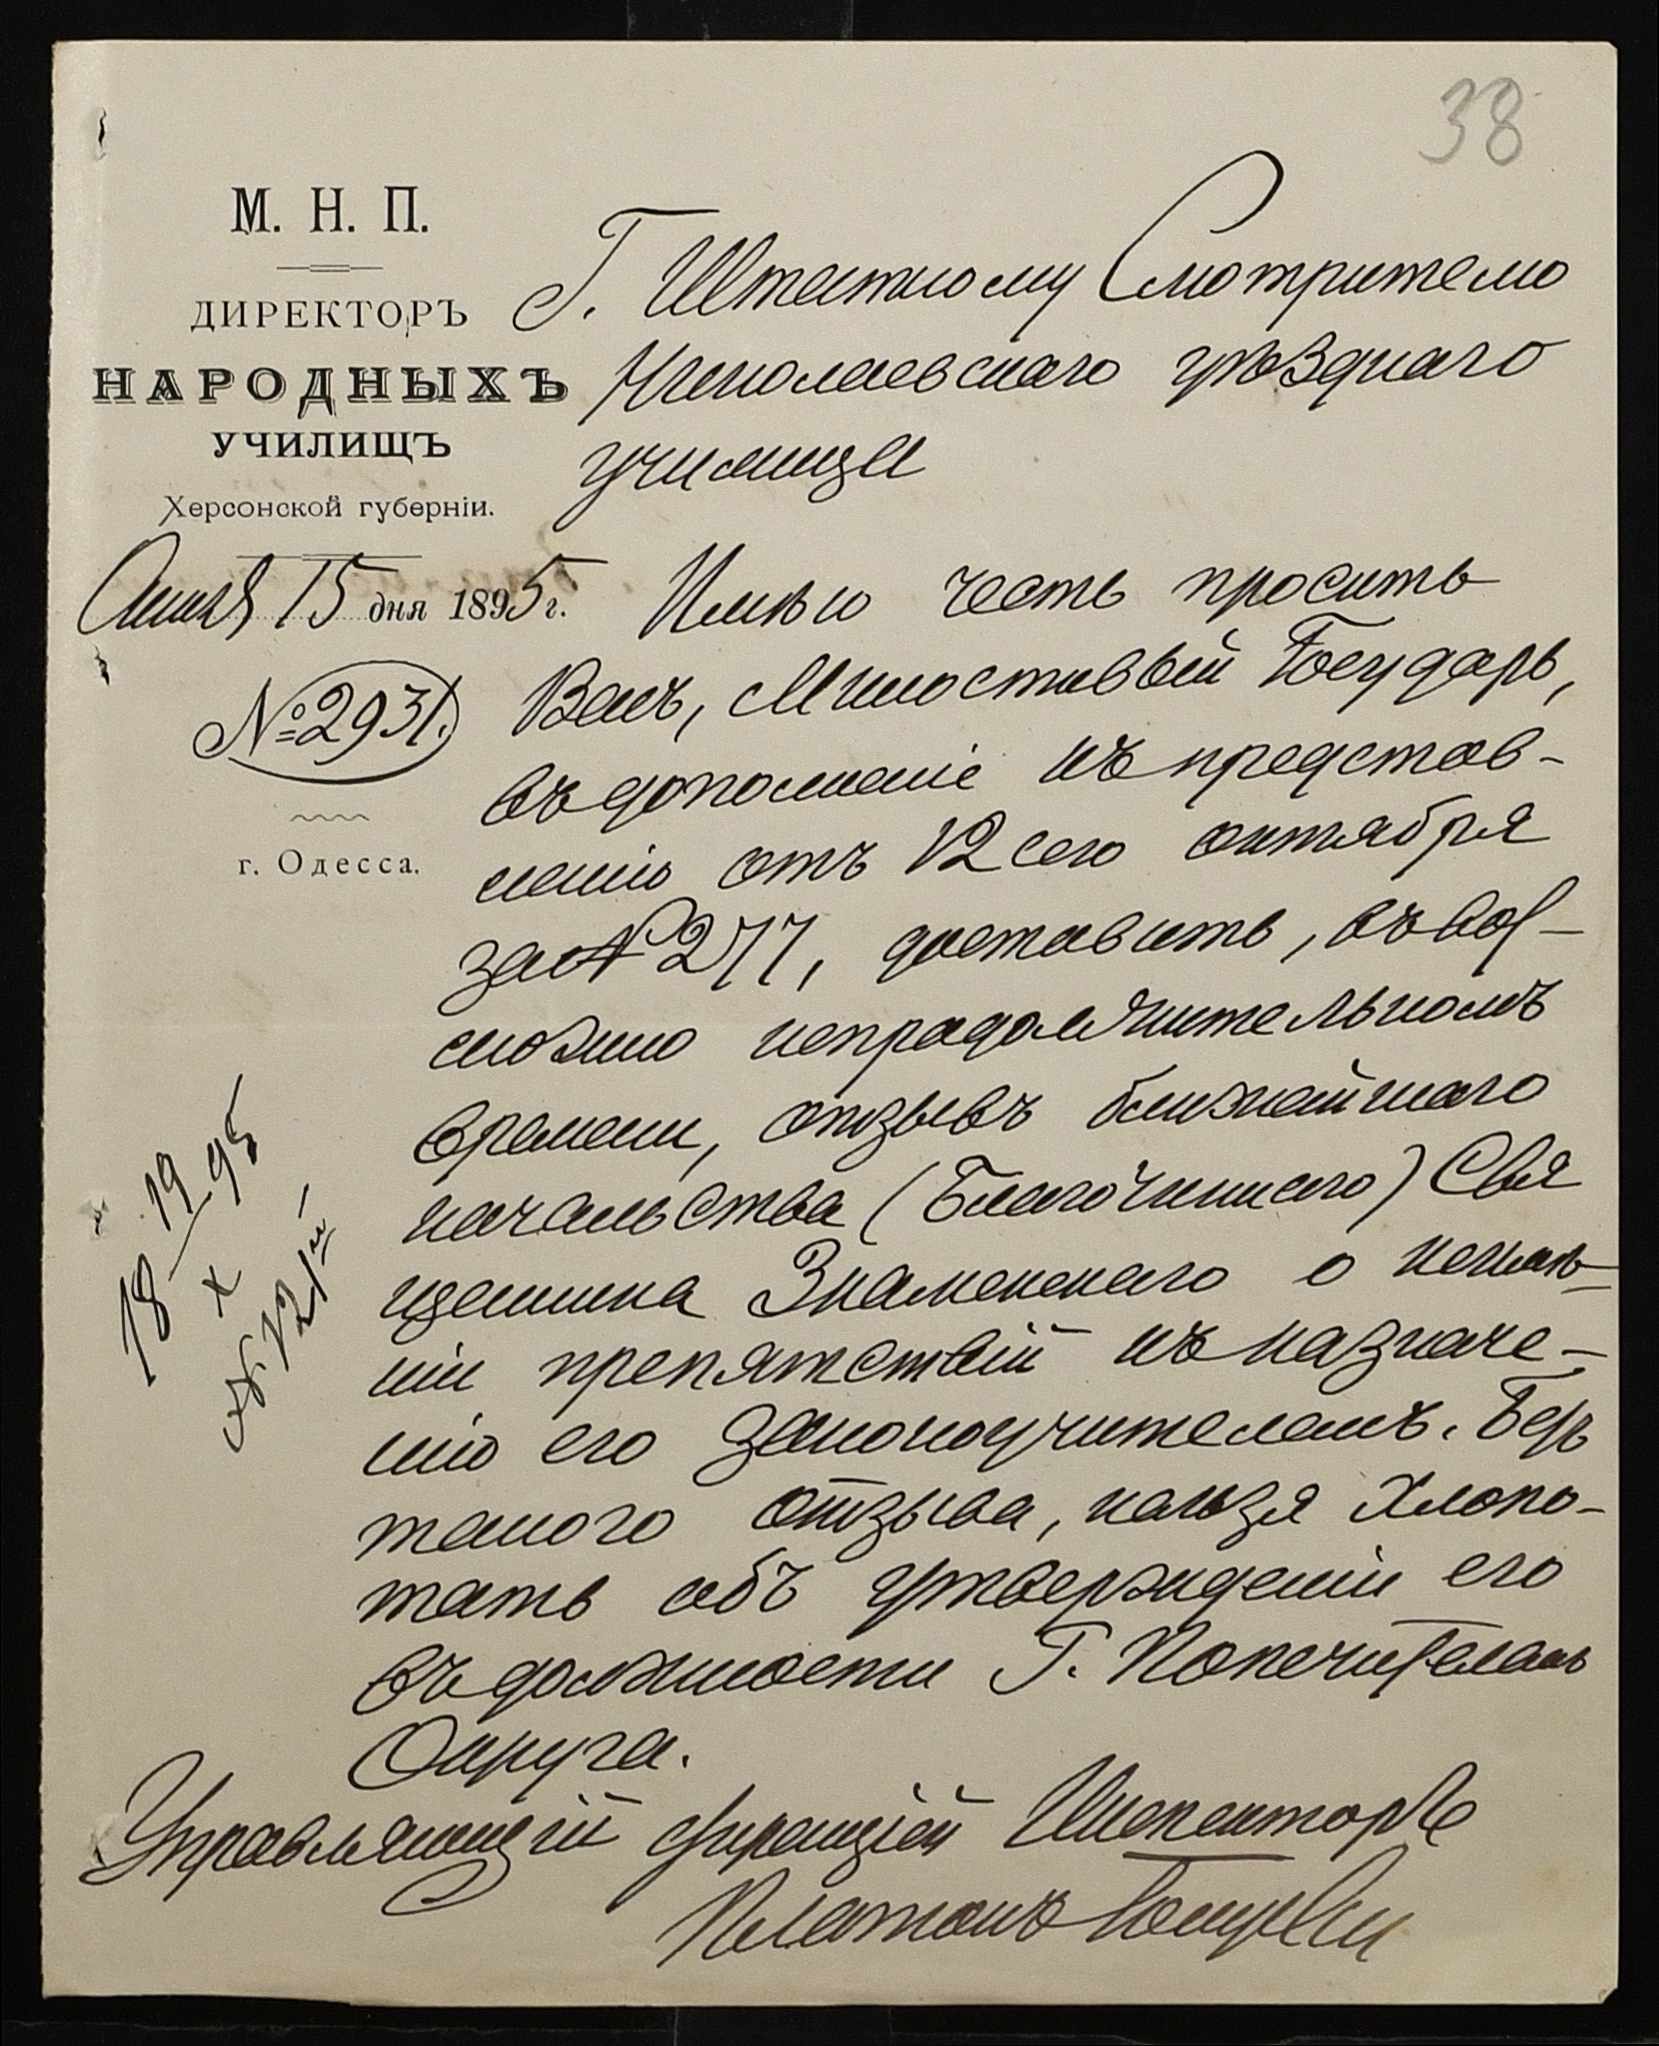 38
М. Н. П.
ДИРЕКТОРЪ
НАРОДНЫХЪ
УЧИЛИЩЪ
Херсонской губерніи.
15 дня 1895 г.
№ 2931.
г. Одесса.
Г. Штатному Смотрителю
Николаевскаго уѣзднаго
училища
Имѣю честь просить
Васъ, Милостивый Государь,
въ дополненіе къ представ-
ленію отъ 12 сего октября
за № 277, доставить, въ воз-
можно непродолжительномъ
времени, отзывъ ближайшаго
начальства (Благочиннаго) Свя
щенника Знаменскаго о неимѣ-
ніи препятствій къ назначе-
нію его законоучителемъ. Безъ
такого отзыва, нельзя хлопо-
тать объ утвержденіи его
въ должности Г. Попечителемъ
Округа.
Управляющій дирекціей Инспекторъ
Платонъ
18 19/X 95